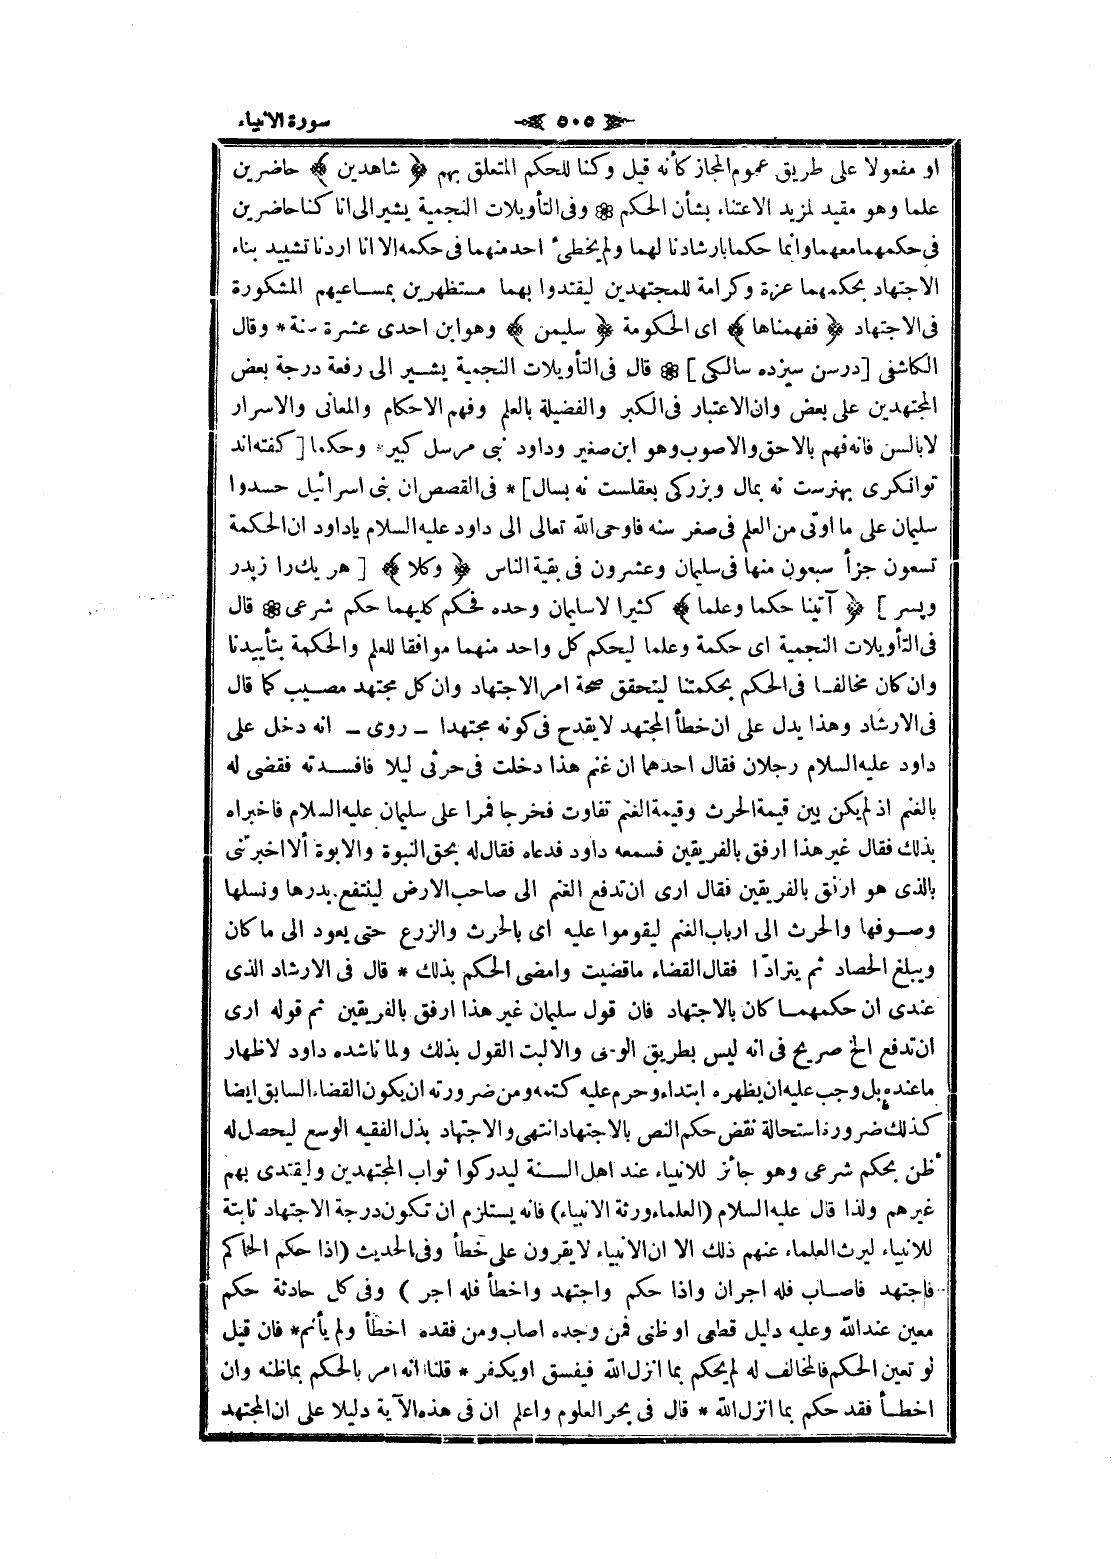 سورة الانبياء
٥٠٥
او مفعولا على طريق عموم المجاز كأنه قيل وكنا للحكم المتعلق بهم ﴿ شاهدين ﴾ حاضرين
علما وهو مقيد لمزيد الاعتناء بشأن الحكم ۞ وفى التأويلات النجمية يشير الى انا كنا حاضرين
فى حكمهما معهما وانما حكما بارشادنا لهما ولم يخطئ احد منهما فى حكمه الا انا اردنا تشييد بناء
الاجتهاد بحكمهما عزة وكرامة للمجتهدين ليقتدوا بهما مستظهرين بمساعيهم المشكورة
فى الاجتهاد ﴿ ففهمناها ﴾ اى الحكومة ﴿ سليمن ﴾ وهو ابن احدى عشرة سنة * وقال
الكاشفى [درسن سيزده سالكى] ۞ قال فى التأويلات النجمية يشير الى رفعة درجة بعض
المجتهدين على بعض وان الاعتبار فى الكبر والفضيلة بالعلم وفهم الاحكام والمعانى والاسرار
لا بالسن فانه فهم بالاحق والاصوب وهو ابن صغير وداود نبى مرسل كبير * وحكما [ كفته اند
توانكرى بهنرست نه بمال وبزركى بعقلست نه بسال] * فى القصص ان بنى اسرائيل حسدوا
سليمان على ما اوتى من العلم فى صغر سنه فاوحى الله تعالى الى داود عليه السلام ياداود ان الحكمة
تسعون جزأ سبعون منها فى سليمان وعشرون فى بقية الناس ﴿ وكلا ﴾ [ هر يك را ز پدر
وپسر ] ﴿ آتينا حكما وعلما ﴾ كثيرا لا سليمان وحده فحكم كليهما حكم شرعى ۞ قال
فى التأويلات النجمية اى حكمة وعلما ليحكم كل واحد منهما موافقا للعلم والحكمة بتأييدنا
وان كان مخالفا فى الحكم بحكمتنا ليتحقق صحة امر الاجتهاد وان كل مجتهد مصيب كما قال
فى الارشاد وهذا يدل على ان خطأ المجتهد لا يقدح فى كونه مجتهدا ـ روى ـ انه دخل على
داود عليه السلام رجلان فقال احدهما ان غنم هذا دخلت فى حرثى ليلا فافسدته فقضى له
بالغنم اذ لم يكن بين قيمة الحرث وقيمة الغنم تفاوت فخرجا فمرا على سليمان عليه السلام فاخبراه
بذلك فقال غير هذا ارفق بالفريقين فسمعه داود فدعاه فقال له بحق النبوة والابوة ألا اخبرتنى
بالذى هو ارفق بالفريقين فقال ارى ان تدفع الغنم الى صاحب الارض لينتفع بدرها ونسلها
وصوفها والحرث الى ارباب الغنم ليقوموا عليه اى بالحرث والزرع حتى يعود الى ما كان
ويبلغ الحصاد ثم يترادّا فقال القضاء ما قضيت وامضى الحكم بذلك * قال فى الارشاد الذى
عندى ان حكمهما كان بالاجتهاد فان قول سليمان غير هذا ارفق بالفريقين ثم قوله ارى
ان تدفع الخ صريح فى انه ليس بطريق الوحى والا لبت القول بذلك ولما ناشده داود لاظهار
ما عنده بل وجب عليه ان يظهره ابتداء وحرم عليه كتمه ومن ضرورته ان يكون القضاء السابق ايضا
كذلك ضرورة استحالة نقض حكم النص بالاجتهاد انتهى والاجتهاد بذل الفقيه الوسع ليحصل له
ظن بحكم شرعى وهو جائز للانبياء عند اهل السنة ليدركوا ثواب المجتهدين وليقتدى بهم
غيرهم ولذا قال عليه السلام (العلماء ورثة الانبياء) فانه يستلزم ان تكون درجة الاجتهاد ثابتة
للانبياء ليرث العلماء عنهم ذلك الا ان الانبياء لا يقرون على خطأ وفى الحديث (اذا حكم الحاكم
فاجتهد فاصاب فله اجران واذا حكم واجتهد واخطأ فله اجر ) وفى كل حادثة حكم
معين عند الله وعليه دليل قطعى او ظنى فمن وجده اصاب ومن فقده اخطأ ولم يأثم * فان قيل
لو تعين الحكم فالمخالف له لم يحكم بما انزل الله فيفسق او يكفر * قلنا انه امر بالحكم بما ظنه وان
اخطأ فقد حكم بما انزل الله * قال فى بحر العلوم واعلم ان فى هذه الآية دليلا على ان المجتهد